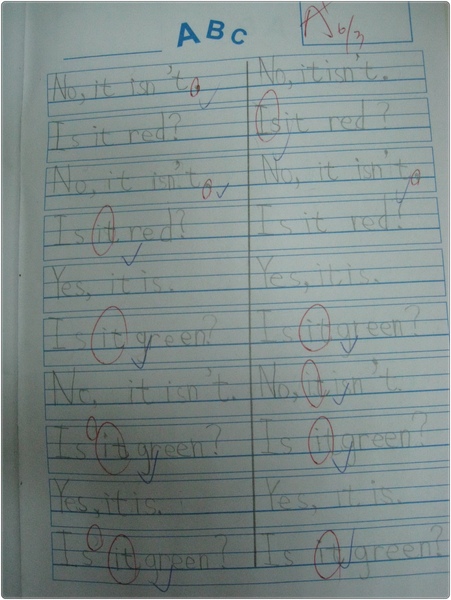 ABC
A+
6/3
No, it isn't.
Is it red?
No, it isn't.
Is it red?
Yes, it is.
Is it green?
No. it isn't.
Is it green?
Yes, it is.
Is it green?
No, it isn't.
Is it red?
No, it isn't.
Is it red?
Yes, it is.
Is it green?
No, it isn't.
Is it green?
Yes, it is.
Is it green?